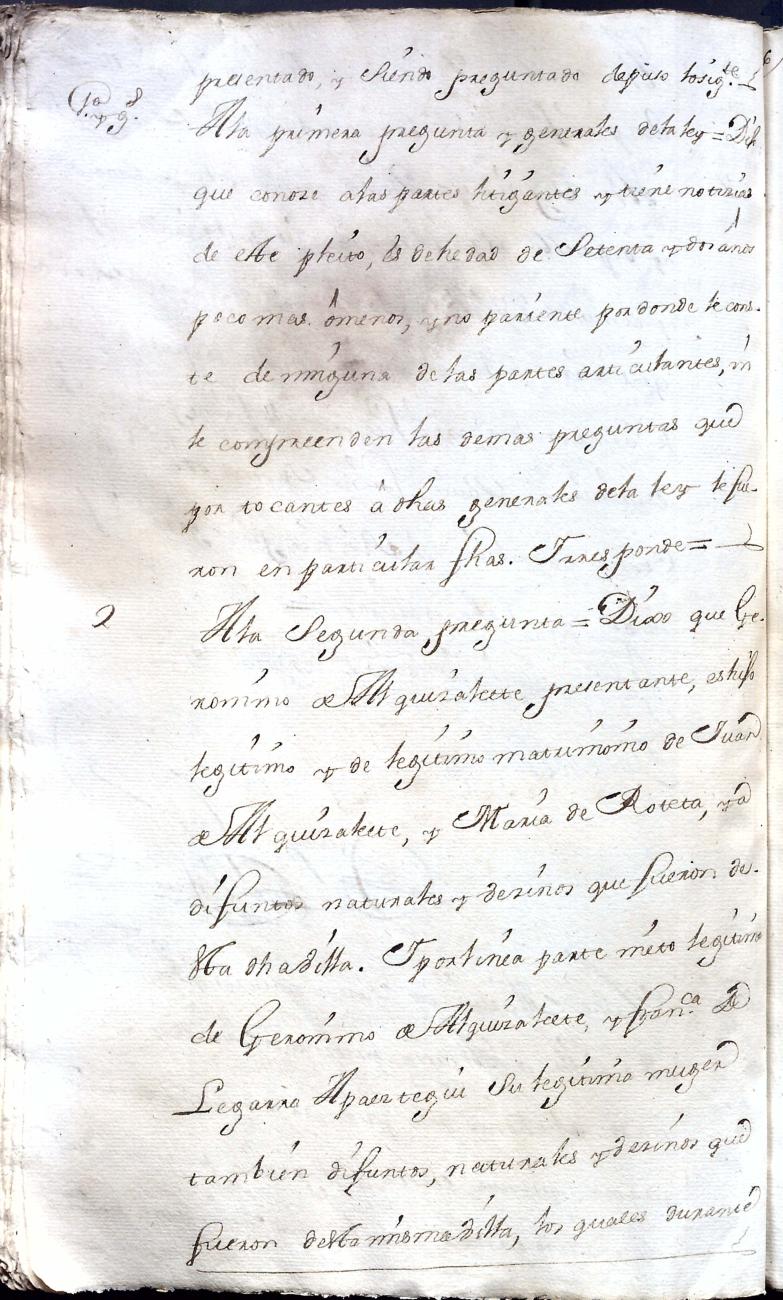 presentado, y siendo preguntado depuso losig.te
1.a y g.s
A la primera pregunta y generales dela ley = Dijo
que conoze alas partes litigantes y tiene noticias
de este pleito, es dehedad de Setenta y dos años
poco mas ômenos, y no pariente por donde le cons-
te deninguna delas partes articulantes, ni
le compreenden las demas preguntas que
por tocantes â dhas generales dela ley le fue-
ron en particular fhas. Y rresponde =
2
A la Segunda pregunta = Dixo que Ge-
ronimo de Alquizalete presentante, es hijo
legitimo y de legitimo matrimonio de Juan
de Alquizalete, y Maria de Roteta, ya
difuntos naturales y vezinos que fueron de-
sta dha villa. Y por linea parte nieto legitimo
de Geronimo de Alquizalete, y Fran.ca de
Legarra Apaeztegui su legitima muger
tambien difuntos, naturales y vezinos que
fueron desta misma villa, los quales durante